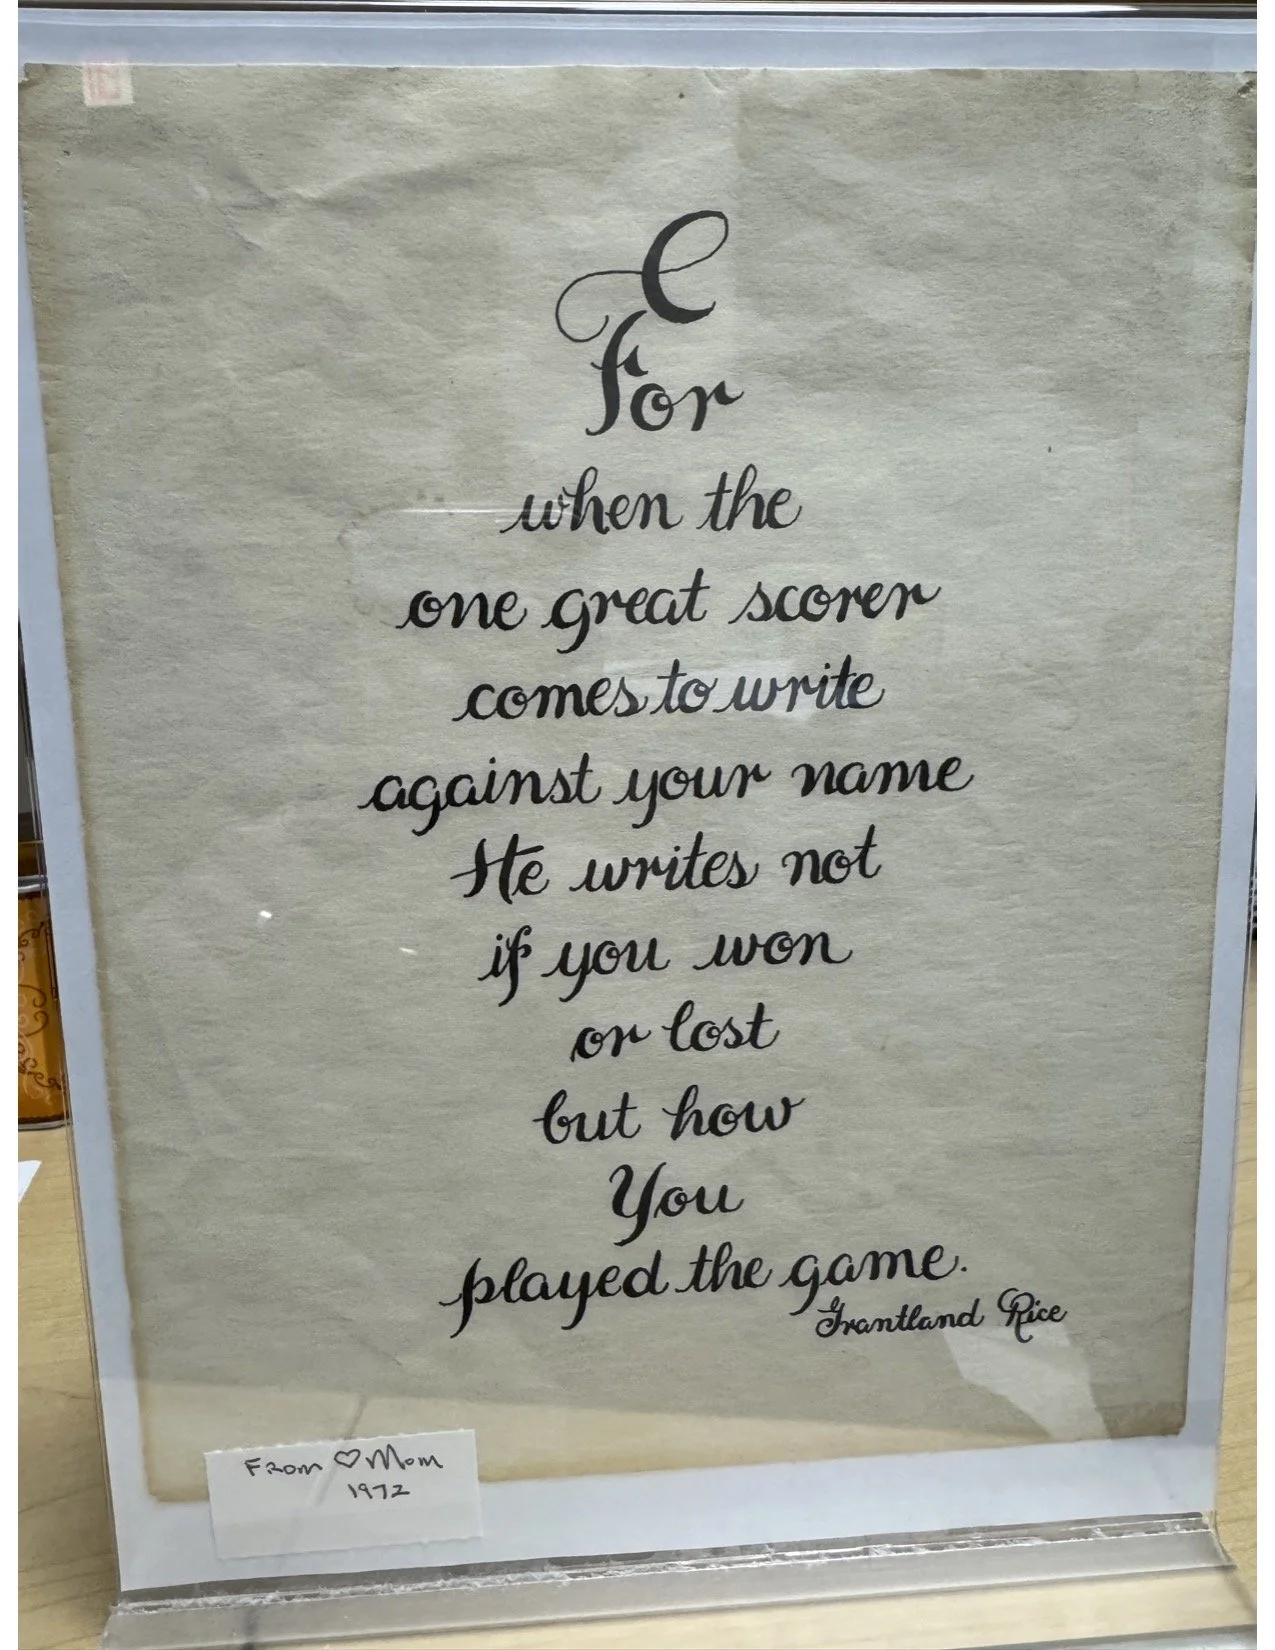 For
when the
one great scorer
comes to write
against your name
He writes not
if you won
or lost
but how
You
played the game.
Grantland Rice
From ♡ Mom
1972